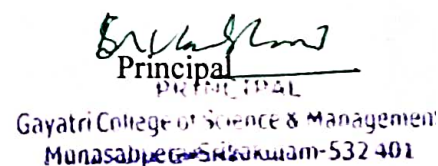 Principal
PRINCIPAL
Gayatri College of Science & Management
Munasabpeta-Srikakulam-532 401